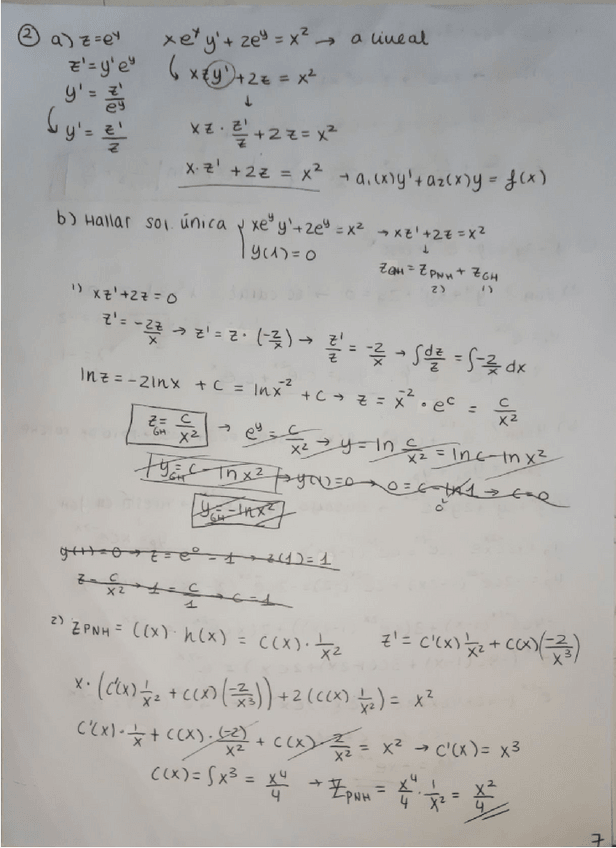 ② a) z=e^y   x e^y y' + 2e^y = x² → a lineal
z' = y'e^y   ↳ xzy' + 2z = x²
y' = z'/e^y   ↓
↳ y' = z'/z   xz · z'/z + 2z = x²
x·z' + 2z = x² → a₁(x)y' + a₂(x)y = f(x)
b) Hallar sol. única { xe^y y' + 2e^y = x² → xz' + 2z = x²
y(1) = 0   ↓
z_GNH = z_PNH + z_GH
2)   1)
1) xz' + 2z = 0
z' = -2z/x → z' = z · (-2/x) → z'/z = -2/x → ∫dz/z = ∫-2/x dx
ln z = -2lnx + C = lnx^-2 + C → z = x^-2 · e^C = C/x²
z_GH = C/x² → e^y = C/x² → y = ln C/x² = lnC - lnx²
y_GH = C - lnx² → y(1)=0 → 0 = C - ln1 → C=0
0
y_GH = -lnx²
y(1)=0 → z = e^0 = 1 → z(1)=1
z = C/x² → 1 = C/1 → C = 1
2) z_PNH = C(x) · h(x) = C(x) · 1/x²   z' = C'(x) 1/x² + C(x)(-2/x³)
x · (C'(x) 1/x² + C(x)(-2/x³)) + 2(C(x) 1/x²) = x²
C'(x) · 1/x + C(x) · (-2)/x² + C(x) 2/x² = x² → C'(x) = x³
C(x) = ∫x³ = x⁴/4 → z_PNH = x⁴/4 · 1/x² = x²/4
7